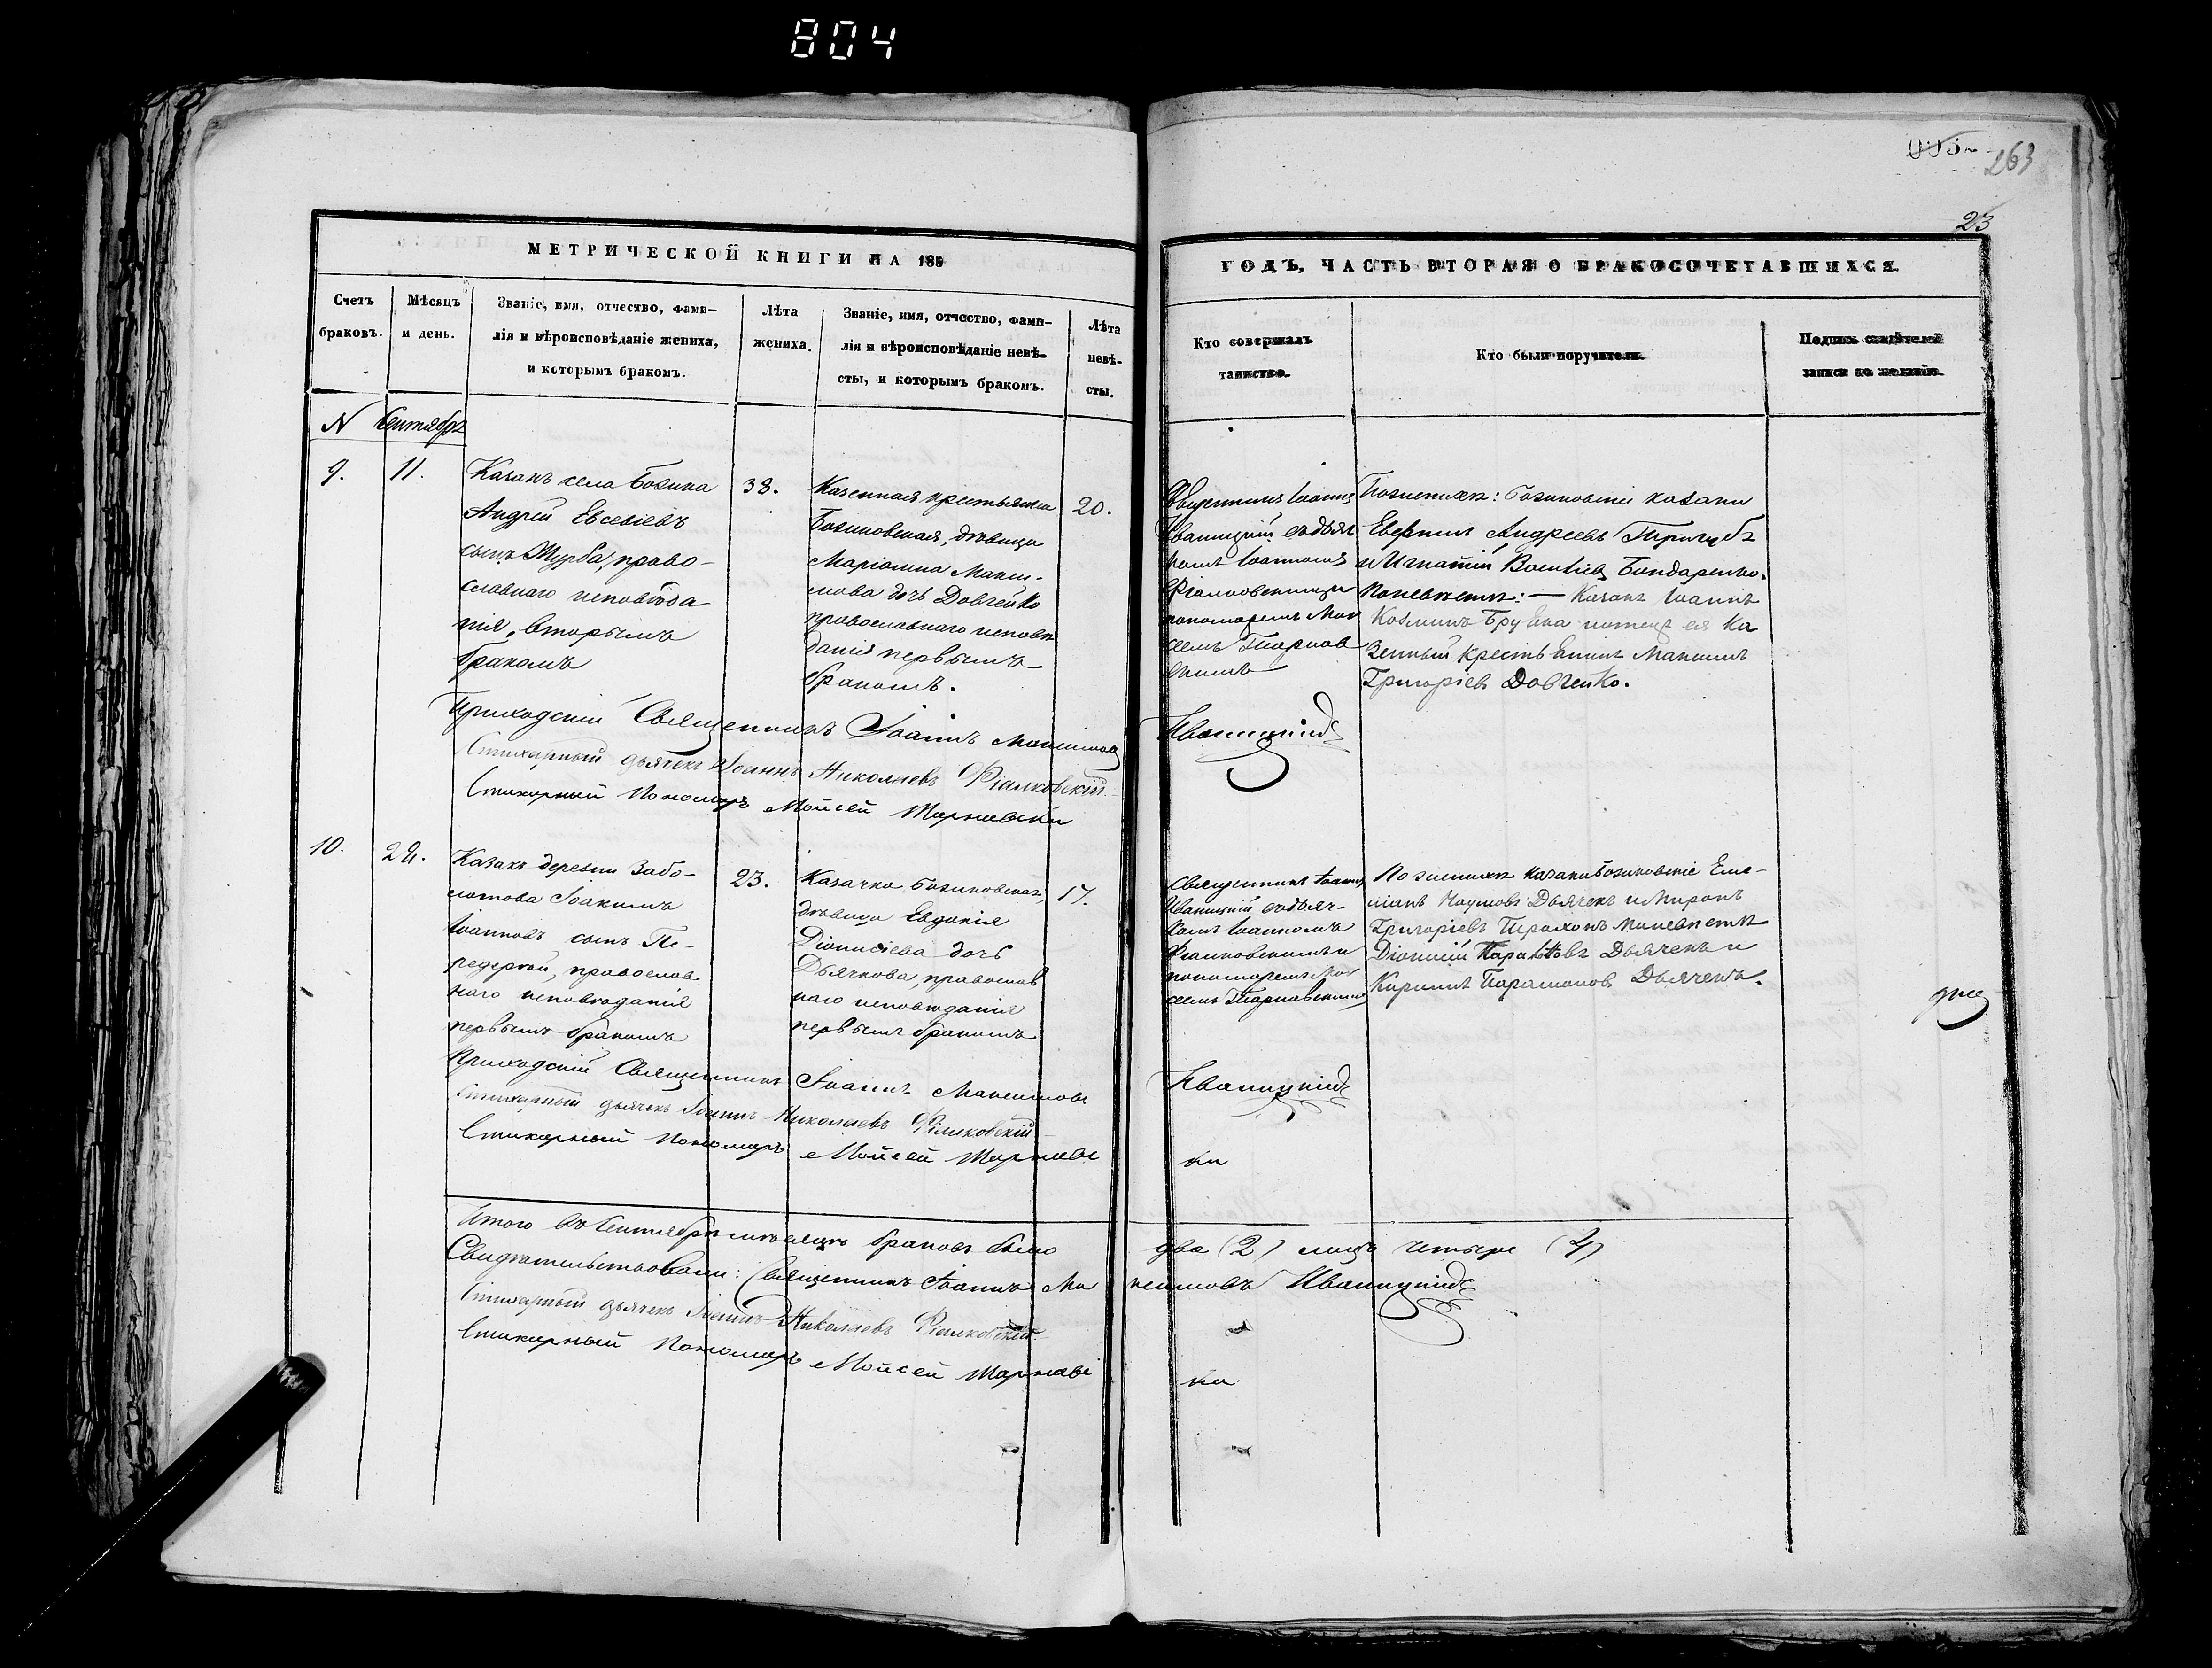 804
263
23
МЕТРИЧЕСКОЙ КНИГИ НА 185
ГОДЪ, ЧАСТЬ ВТОРАЯ О БРАКОСОЧЕТАВШИХСЯ.
Счетъ
браковъ.
Мѣсяцъ
и день.
Званіе, имя, отчество, фами–
лія и вѣроисповѣданіе жениха,
и которымъ бракомъ.
Лѣта
жениха.
Званіе, имя, отчество, фами–
лія и вѣроисповѣданіе невѣ–
сты, и которымъ бракомъ.
Лѣта
невѣ–
сты.
Кто совершалъ
таинство.
Кто были поручители.
Подпись свидѣтелей
записи по желанію.
N Сентябрь
9.
11.
Казакъ села Бозика
Андрей Евсевіевъ
сынъ Журба, право-
славнаго исповѣда
нія, вторымъ
бракомъ
38.
Казенная крестьянка
Бозиковская, дѣвица
Маріамна Макси-
мова дочь Довгейко
православнаго исповѣ
данія первымъ
бракомъ.
20.
Священникъ Іоаннъ
Иваницкій съ дьяч
комъ Іоанномъ
Фіалковскимъ и
пономаремъ Мои
сеемъ Тарнав
скимъ
По женихѣ: Бозиковскіе казаки
Андреевъ
и Игнатій Бондаренко.
По невѣстѣ: — Казакъ Іоаннъ
Козминъ отецъ ея Ка
зенный крестьянинъ Максимъ
Григоріевъ Довгейко.
Приходскій Священникъ Іоаннъ Максимовъ Иваницкій
Стихарный дьячекъ Іоаннъ Николаевъ Фіалковскій
Стихарный Пономарь Мойсей Тарнавски
10.
Казакъ деревни Забо-
лотова Іоакимъ
Іоанновъ сынъ Пе-
редерій, православ-
наго исповѣданія
первымъ бракомъ
23.
Казачка Бозиковская,
дѣвица Евдокія
Діонисіева дочь
Дьячкова, православ
наго исповѣданія
первымъ бракомъ
17.
Священникъ Іоаннъ
Иваницкій съ дьяч-
комъ Іоанномъ
Фіалковскимъ и
пономаремъ Мои
сеемъ Тарнавскимъ
По женихѣ казаки Бозиковскіе Еме-
ліанъ Наумовъ Дьячекъ и Миронъ
Григоріевъ по невѣстѣ
Діонисій Дьячекъ и
Кириллъ Парамоновъ Дьячекъ.
Приходскій Священникъ Іоаннъ Максимовъ Иваницкій
Стихарный дьячекъ Іоаннъ Николаевъ Фіалковскій
Стихарный Пономарь Мойсей Тарнавс ки
Итого въ Сентябрѣ мѣсяцѣ браковъ было два (2) лицъ четыре (4)
Свидѣтельствовали: Священникъ Іоаннъ Максимовъ Иваницкій
Стихарный дьячекъ Іоаннъ Николаевъ Фіалковскій
Стихарный Пономарь Мойсей Тарнавс ки